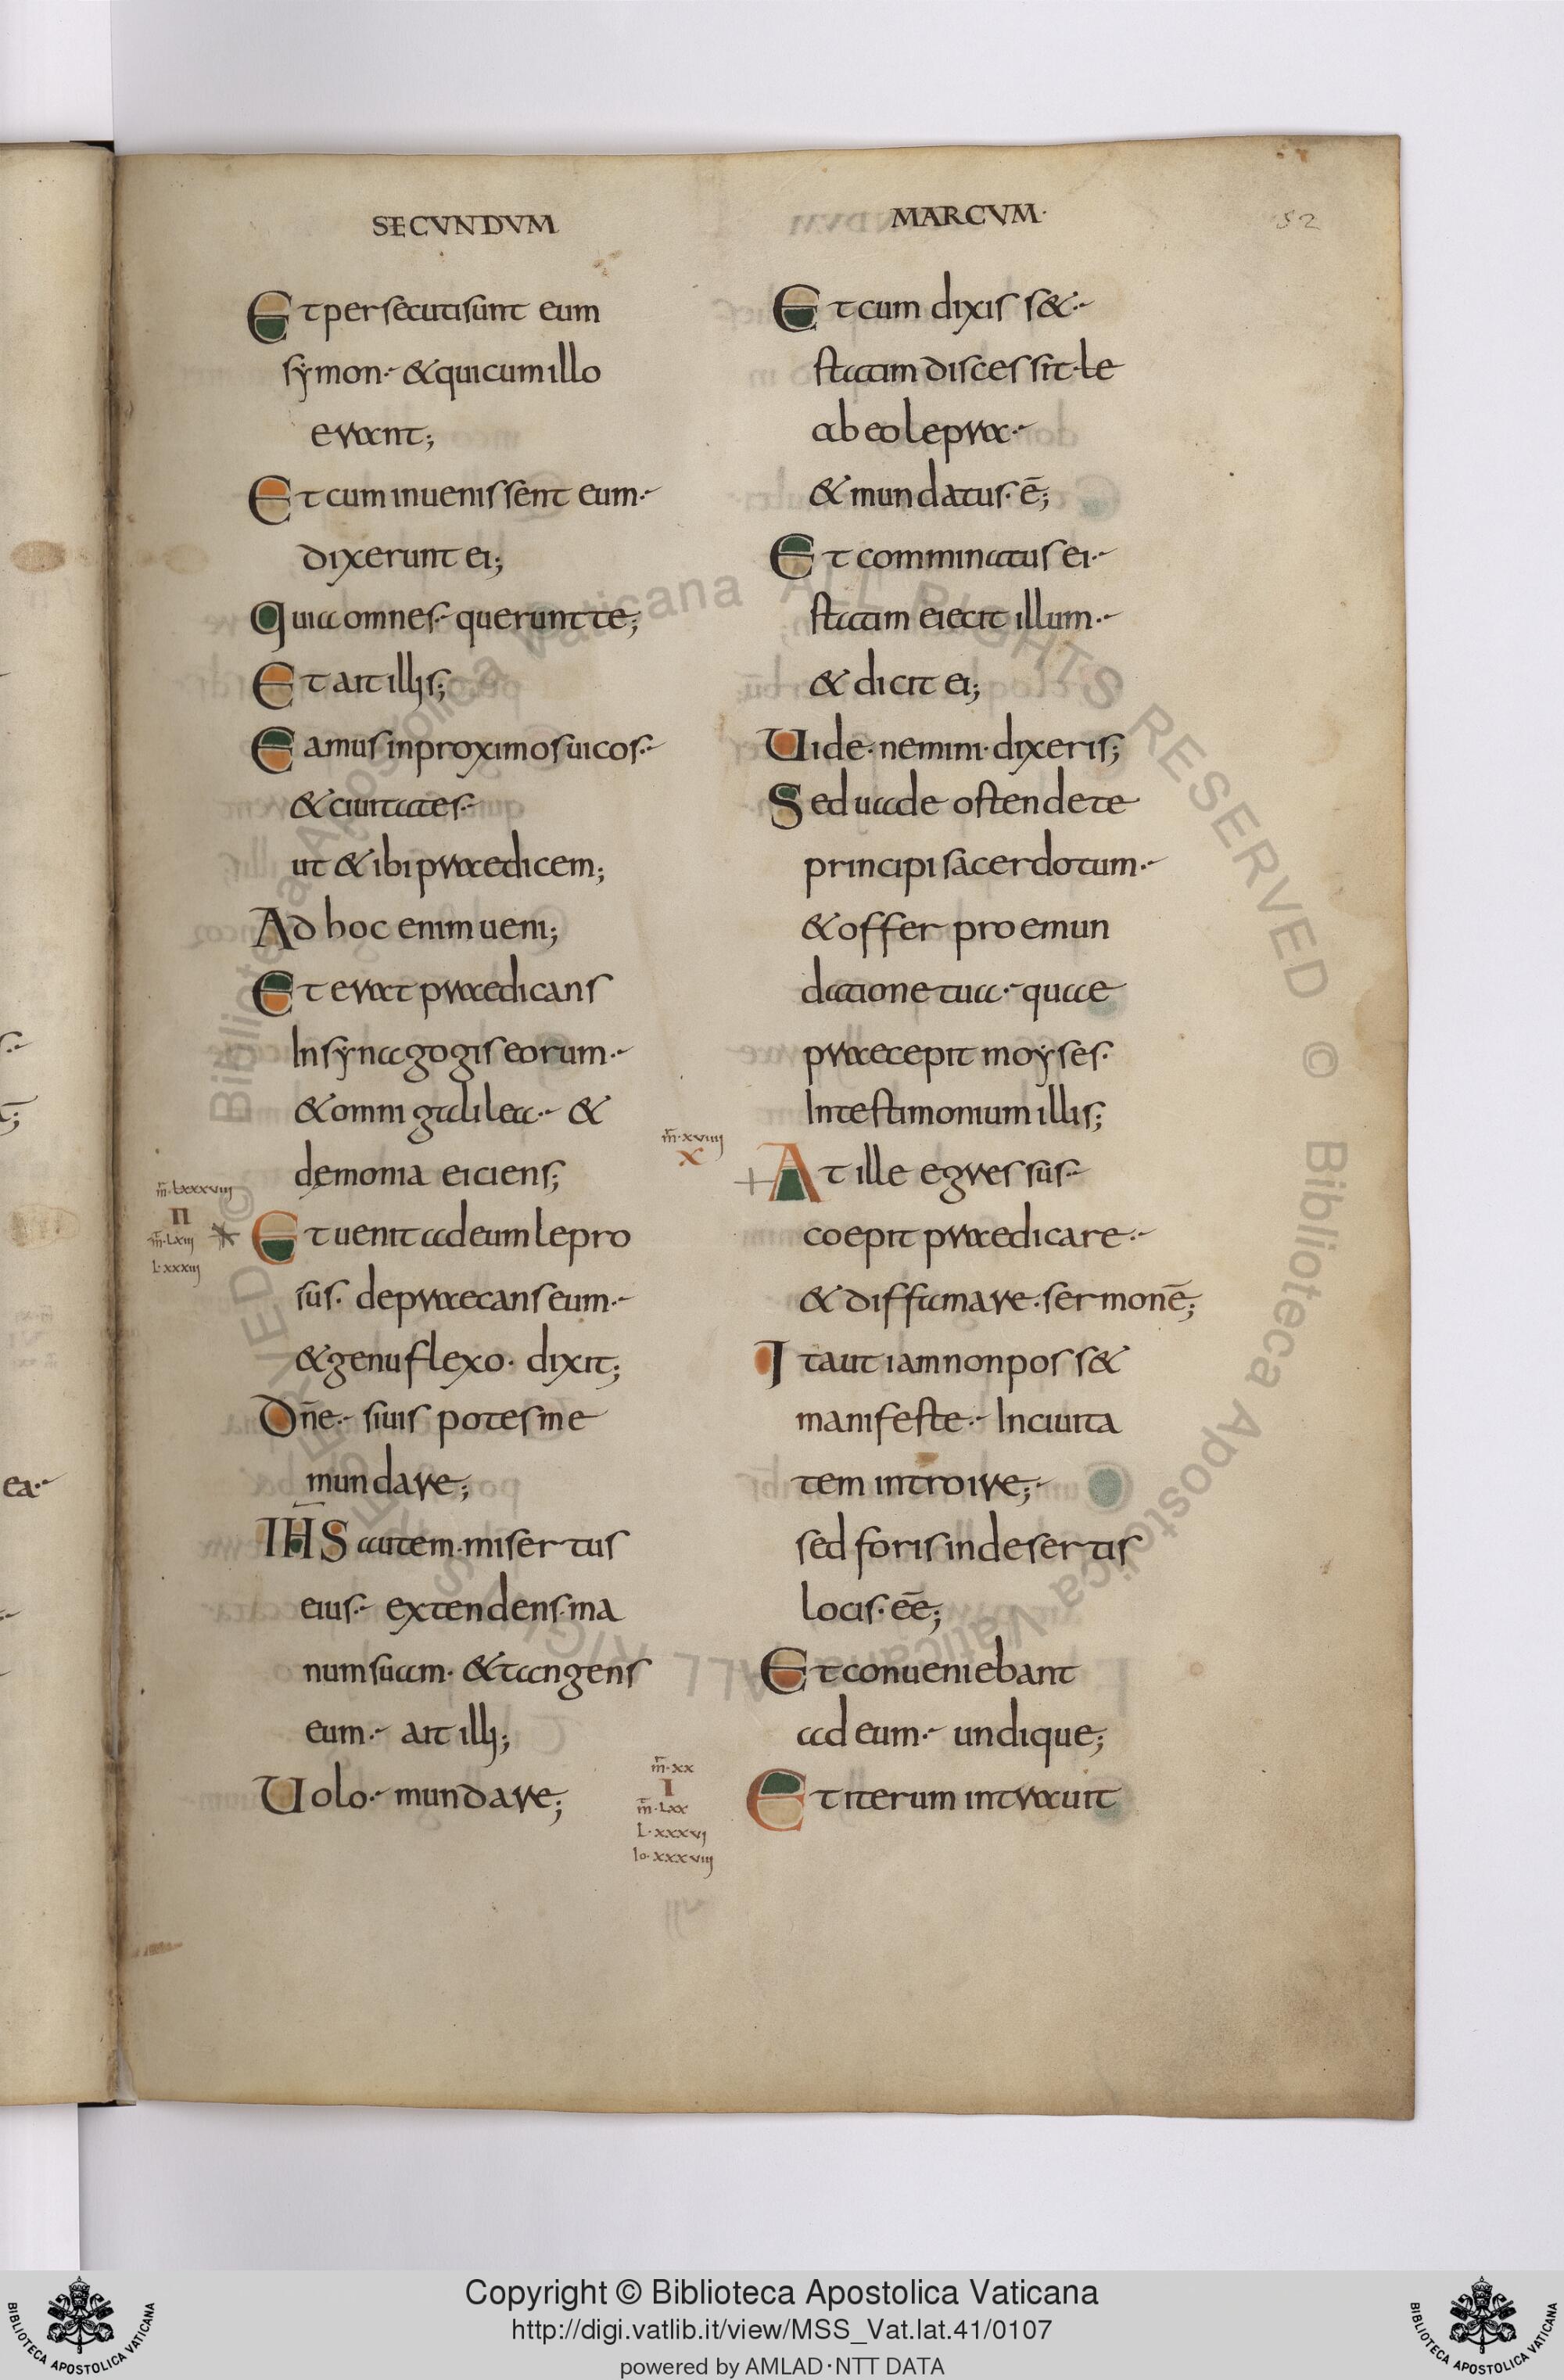 SECVNDVM
MARCVM·
52
Et persecuti sunt eum
symon· & qui cum illo
erant;
Et cum inuenissent eum·
dixerunt ei;
Quia omnes· querunt te;
Et ait illis;
Eamus in proximos uicos·
& ciuitates·
ut & ibi praedicem;
Ad hoc enim ueni;
Et erat praedicans
In synagogis eorum·
& omni galilea· &
demonia eiciens;
m̄·lxxxviiij
II
m̄·lxiij
L·xxxiij
Et uenit ad eum lepro
sus· depraecans eum·
& genu flexo· dixit;
Dn̄e· si uis potes me
mundare;
IHS̄ autem· misertus
eius· extendens· ma
num suam· & tangens
eum· ait illi;
Uolo· mundare;
Et cum dixiss&·
statim discessit·le
ab eo lepra·
& mundatus· ē;
Et comminatus ei·
statim eiecit illum·
& dicit ei;
Uide· nemini· dixeris;
Sed uade ostende te
principi sacerdotum·
& offer pro emun
datione tua· quae
praecepit moyses·
In testimonium illis;
m̄·xviiij
X
At ille egressus·
coepit praedicare·
& diffamare· sermonē;
Ita ut iam non poss&
manifeste· In ciuita
tem introire;·
sed foris in desertis
locis· eē;
Et conueniebant
ad eum· undique;
m̄·xx
I
m̄·lxx
L·xxxvj
Io·xxxviij
Et iterum intrauit
Copyright © Biblioteca Apostolica Vaticana
http://digi.vatlib.it/view/MSS_Vat.lat.41/0107
powered by AMLAD·NTT DATA
BIBLIOTECA APOSTOLICA VATICANA
BIBLIOTECA APOSTOLICA VATICANA
© Biblioteca Apostolica Vaticana ALL RIGHTS RESERVED © Biblioteca Apostolica Vaticana ALL RIGHTS RESERVED